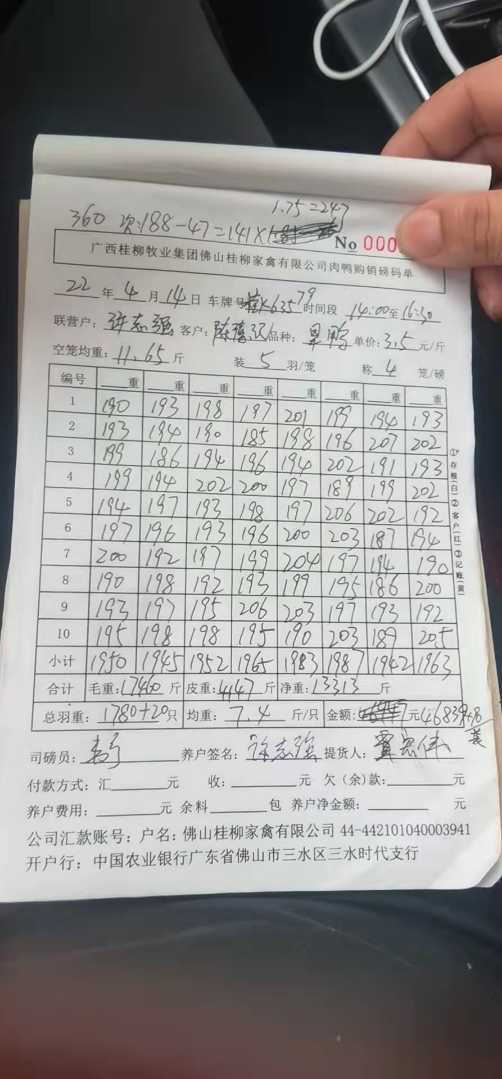 1.75=247
360 次:188-47=141×
No 000
广西桂柳牧业集团佛山桂柳家禽有限公司肉鸭购销磅码单
22年4月14日 车牌号 635 79 时间段 14:00至16:30
联营户: 许志强 客户: 品种: 单价:3.5元/斤
空笼均重:11.65斤 装5羽/笼 称4笼/磅
编号 重 重 重 重 重 重 重 重
1 190 193 198 197 201 199 194 193
2 193 194 190 185 198 196 207 202
3 199 186 194 196 194 202 191 193
4 199 194 202 200 197 189 199 202
5 194 197 193 198 197 206 202 192
6 197 196 193 196 200 203 187 194
7 200 192 197 199 204 197 194 190
8 190 198 192 193 199 195 186 200
9 193 197 195 206 203 197 193 192
10 195 198 198 195 190 203 189 205
小计 1950 1945 1952 1965 1983 1987 1942 1963
合计 毛重:17460斤 皮重:4147斤 净重:13313斤
总羽重:1780+20只 均重:7.4斤/只 金额: 元
司磅员: 养户签名:许志强 提货人:
付款方式:汇 元 收: 元 欠(余)款: 元
养户费用: 元 余料 包 养户净金额: 元
公司汇款账号:户名:佛山桂柳家禽有限公司 44-442101040003941
开户行:中国农业银行广东省佛山市三水区三水时代支行
①存根(白)②客户(红)③记账(黄)